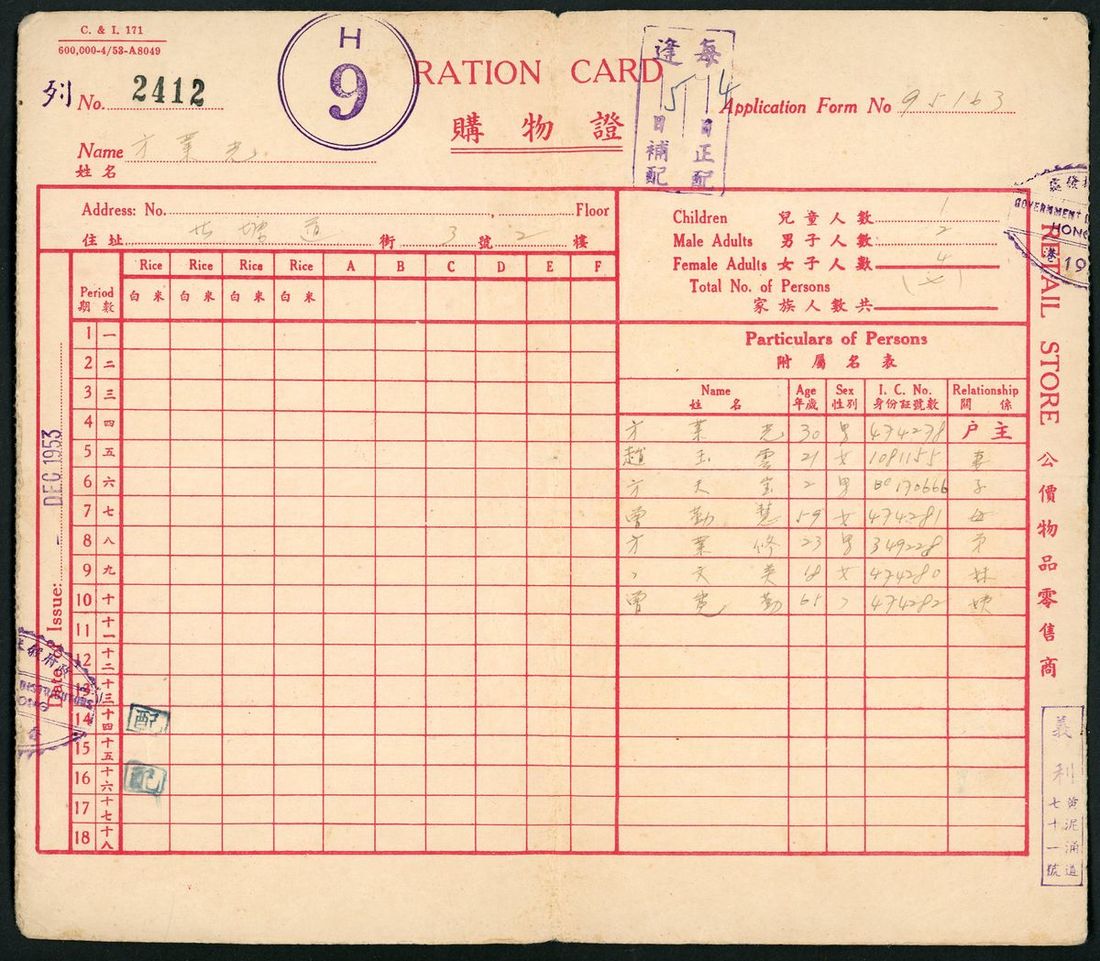 C. & I. 171
600,000-4/53-A8049
列 No. 2412
H
9
RATION CARD
購物證
每 4 日正配
逢 5 日補配
Application Form No 95163
Name 方業光
姓名
Address: No. , Floor
住址 道 街 3 號 2 樓
Children 兒童人數 1
Male Adults 男子人數 2
Female Adults 女子人數 4
Total No. of Persons
家族人數共
Rice Rice Rice Rice A B C D E F
Period
期數
白米 白米 白米 白米
1 一
2 二
3 三
4 四
5 五
6 六
7 七
8 八
9 九
10 十
11 十一
12 十二
13 十三
14 十四 配
15 十五
16 十六 配
17 十七
18 十八
Date of Issue: DEC 1953
Particulars of Persons
附屬名表
Name Age Sex I. C. No. Relationship
姓名 年歲 性別 身份証號數 關係
方業光 30 男 474278 户主
趙玉雲 21 女 1081155 妻
方天 2 男 170666 子
曾勤慧 59 女 474281 母
方業修 23 男 349228 弟
文英 18 女 474280 妹
曾 勤 65 474282 姨
GOVERNMENT
HONG
港 19
RETAIL STORE 公價物品零售商
DISTRIBUTORS
義利
黃泥涌道
七十一號